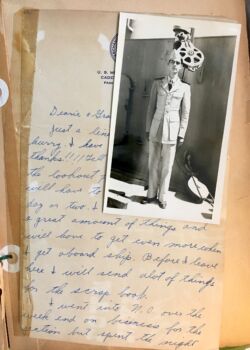 U. S. M
CADE
PAS
Dearie & Gra
Just a line
hurry. & have
thanks!!!
the lookout f
will have to
day or two. &
a great amount of things and
will have to get even more when
& get aboard ship. Before & leave
here & will send alot of things
for the scrap book.
& went into N.O. over the
week end on business for the
ction but spent the night